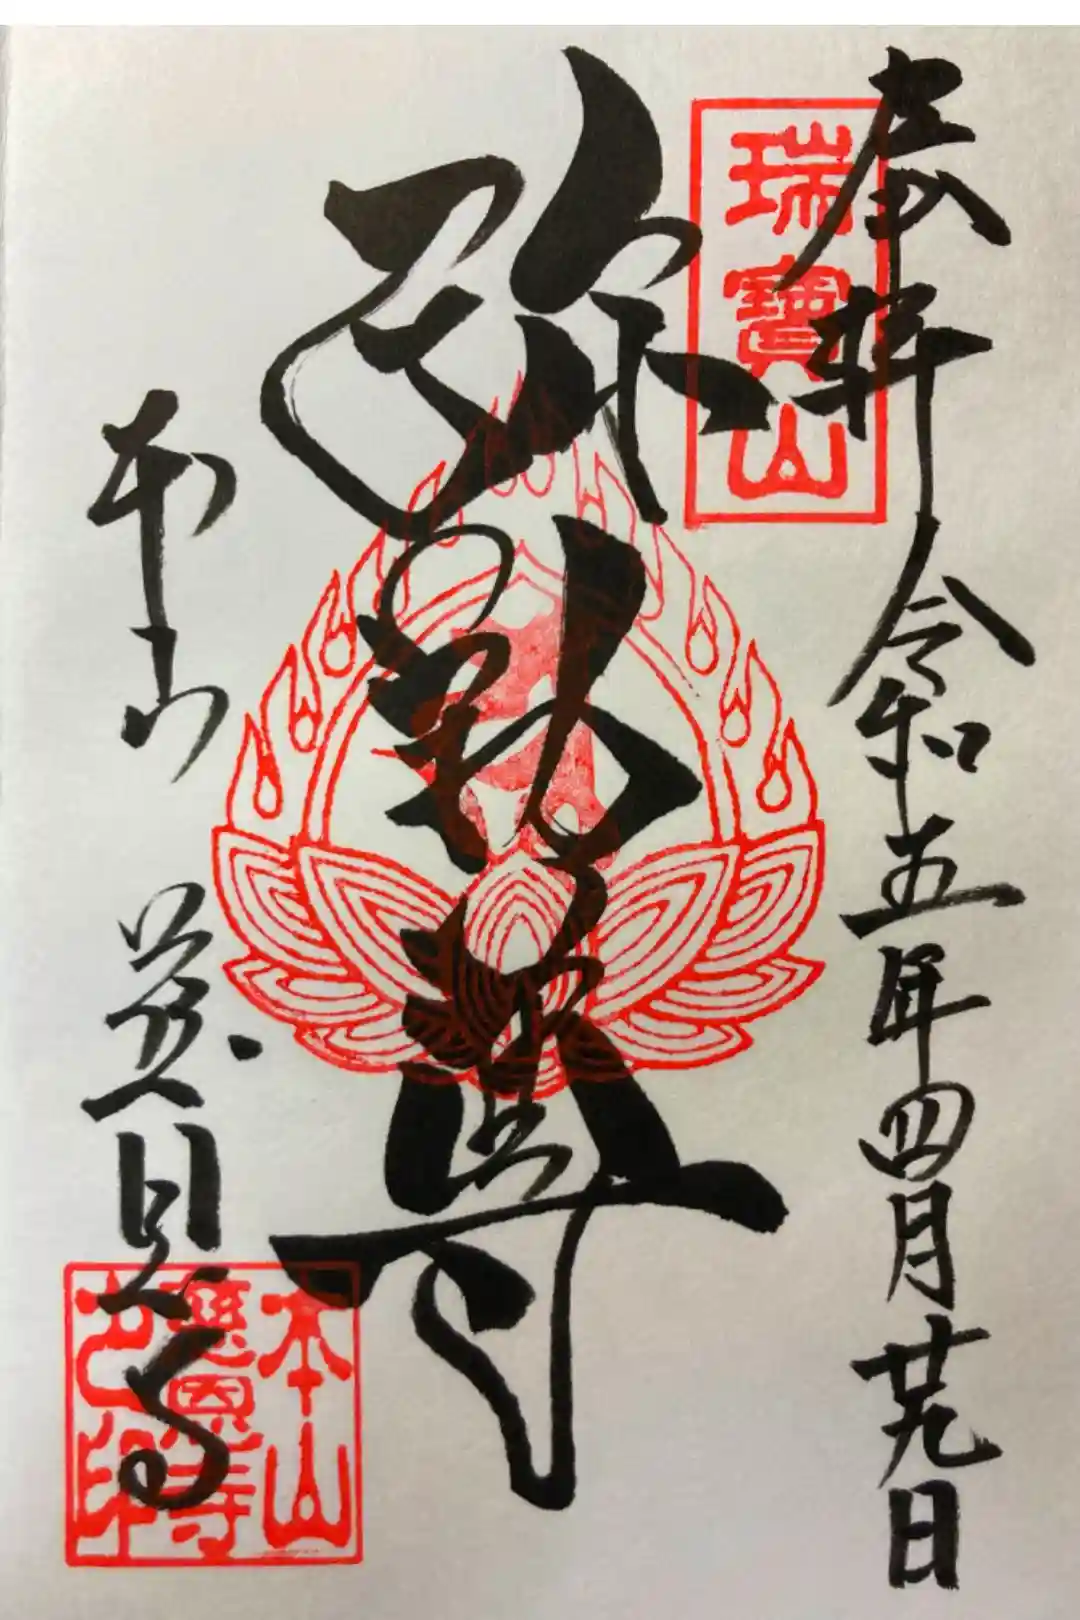 奉拝 令和五年四月廿九日
瑞寶山
弥勒尊
本山 慈恩寺
本山
慈恩寺
之印